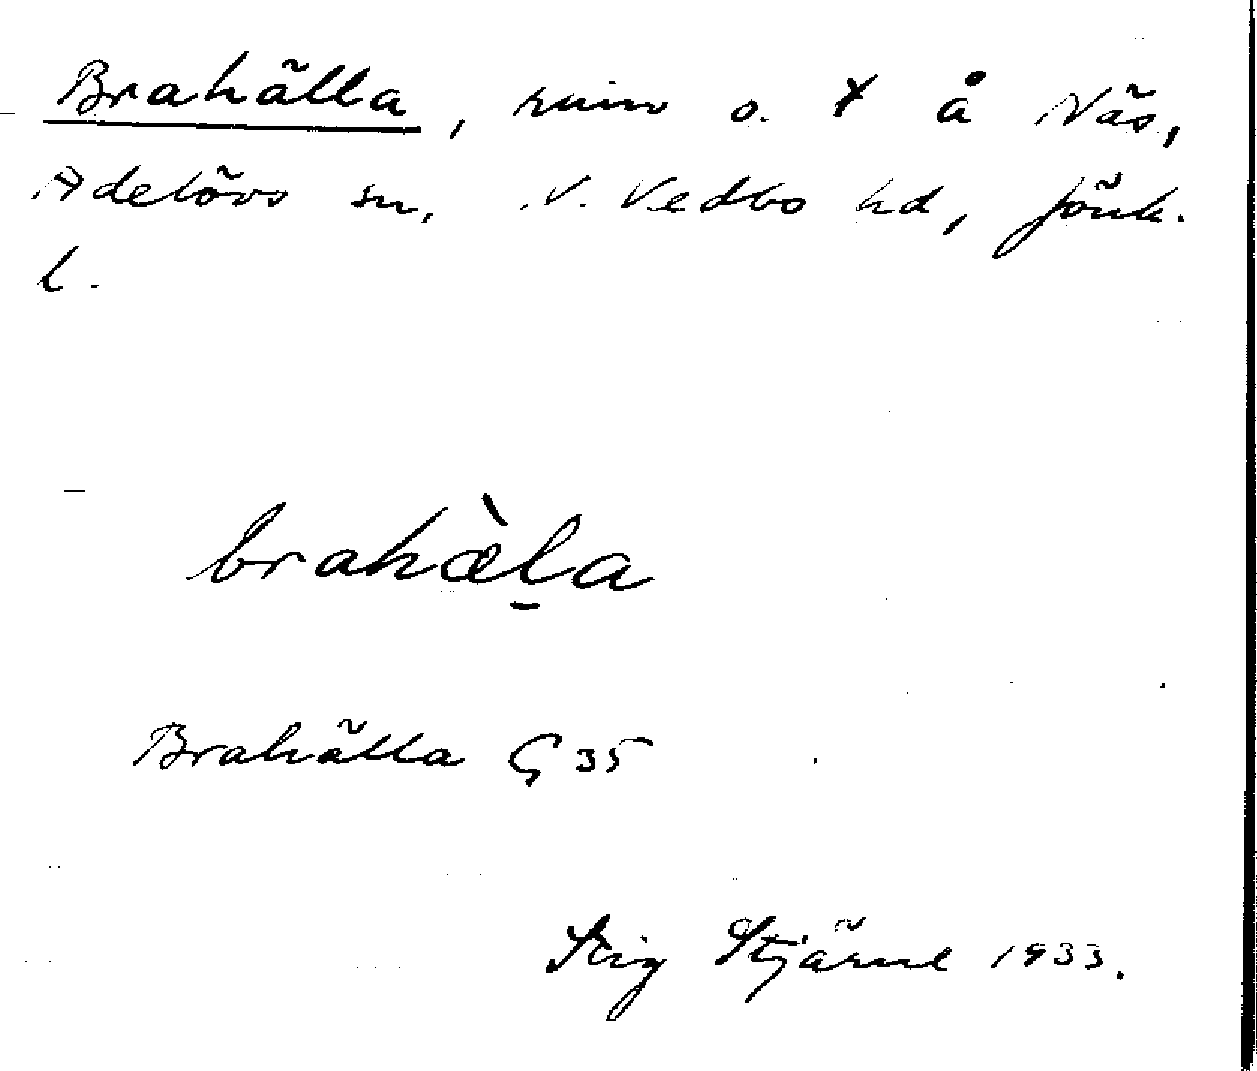 Brahälla, ruin o. † å Näs,
Adelövs sn, N. Vedbo hd, Jönk.
l.
brahæ̀l̠a
Brahälla G 35
Stig Stjärne 1933.